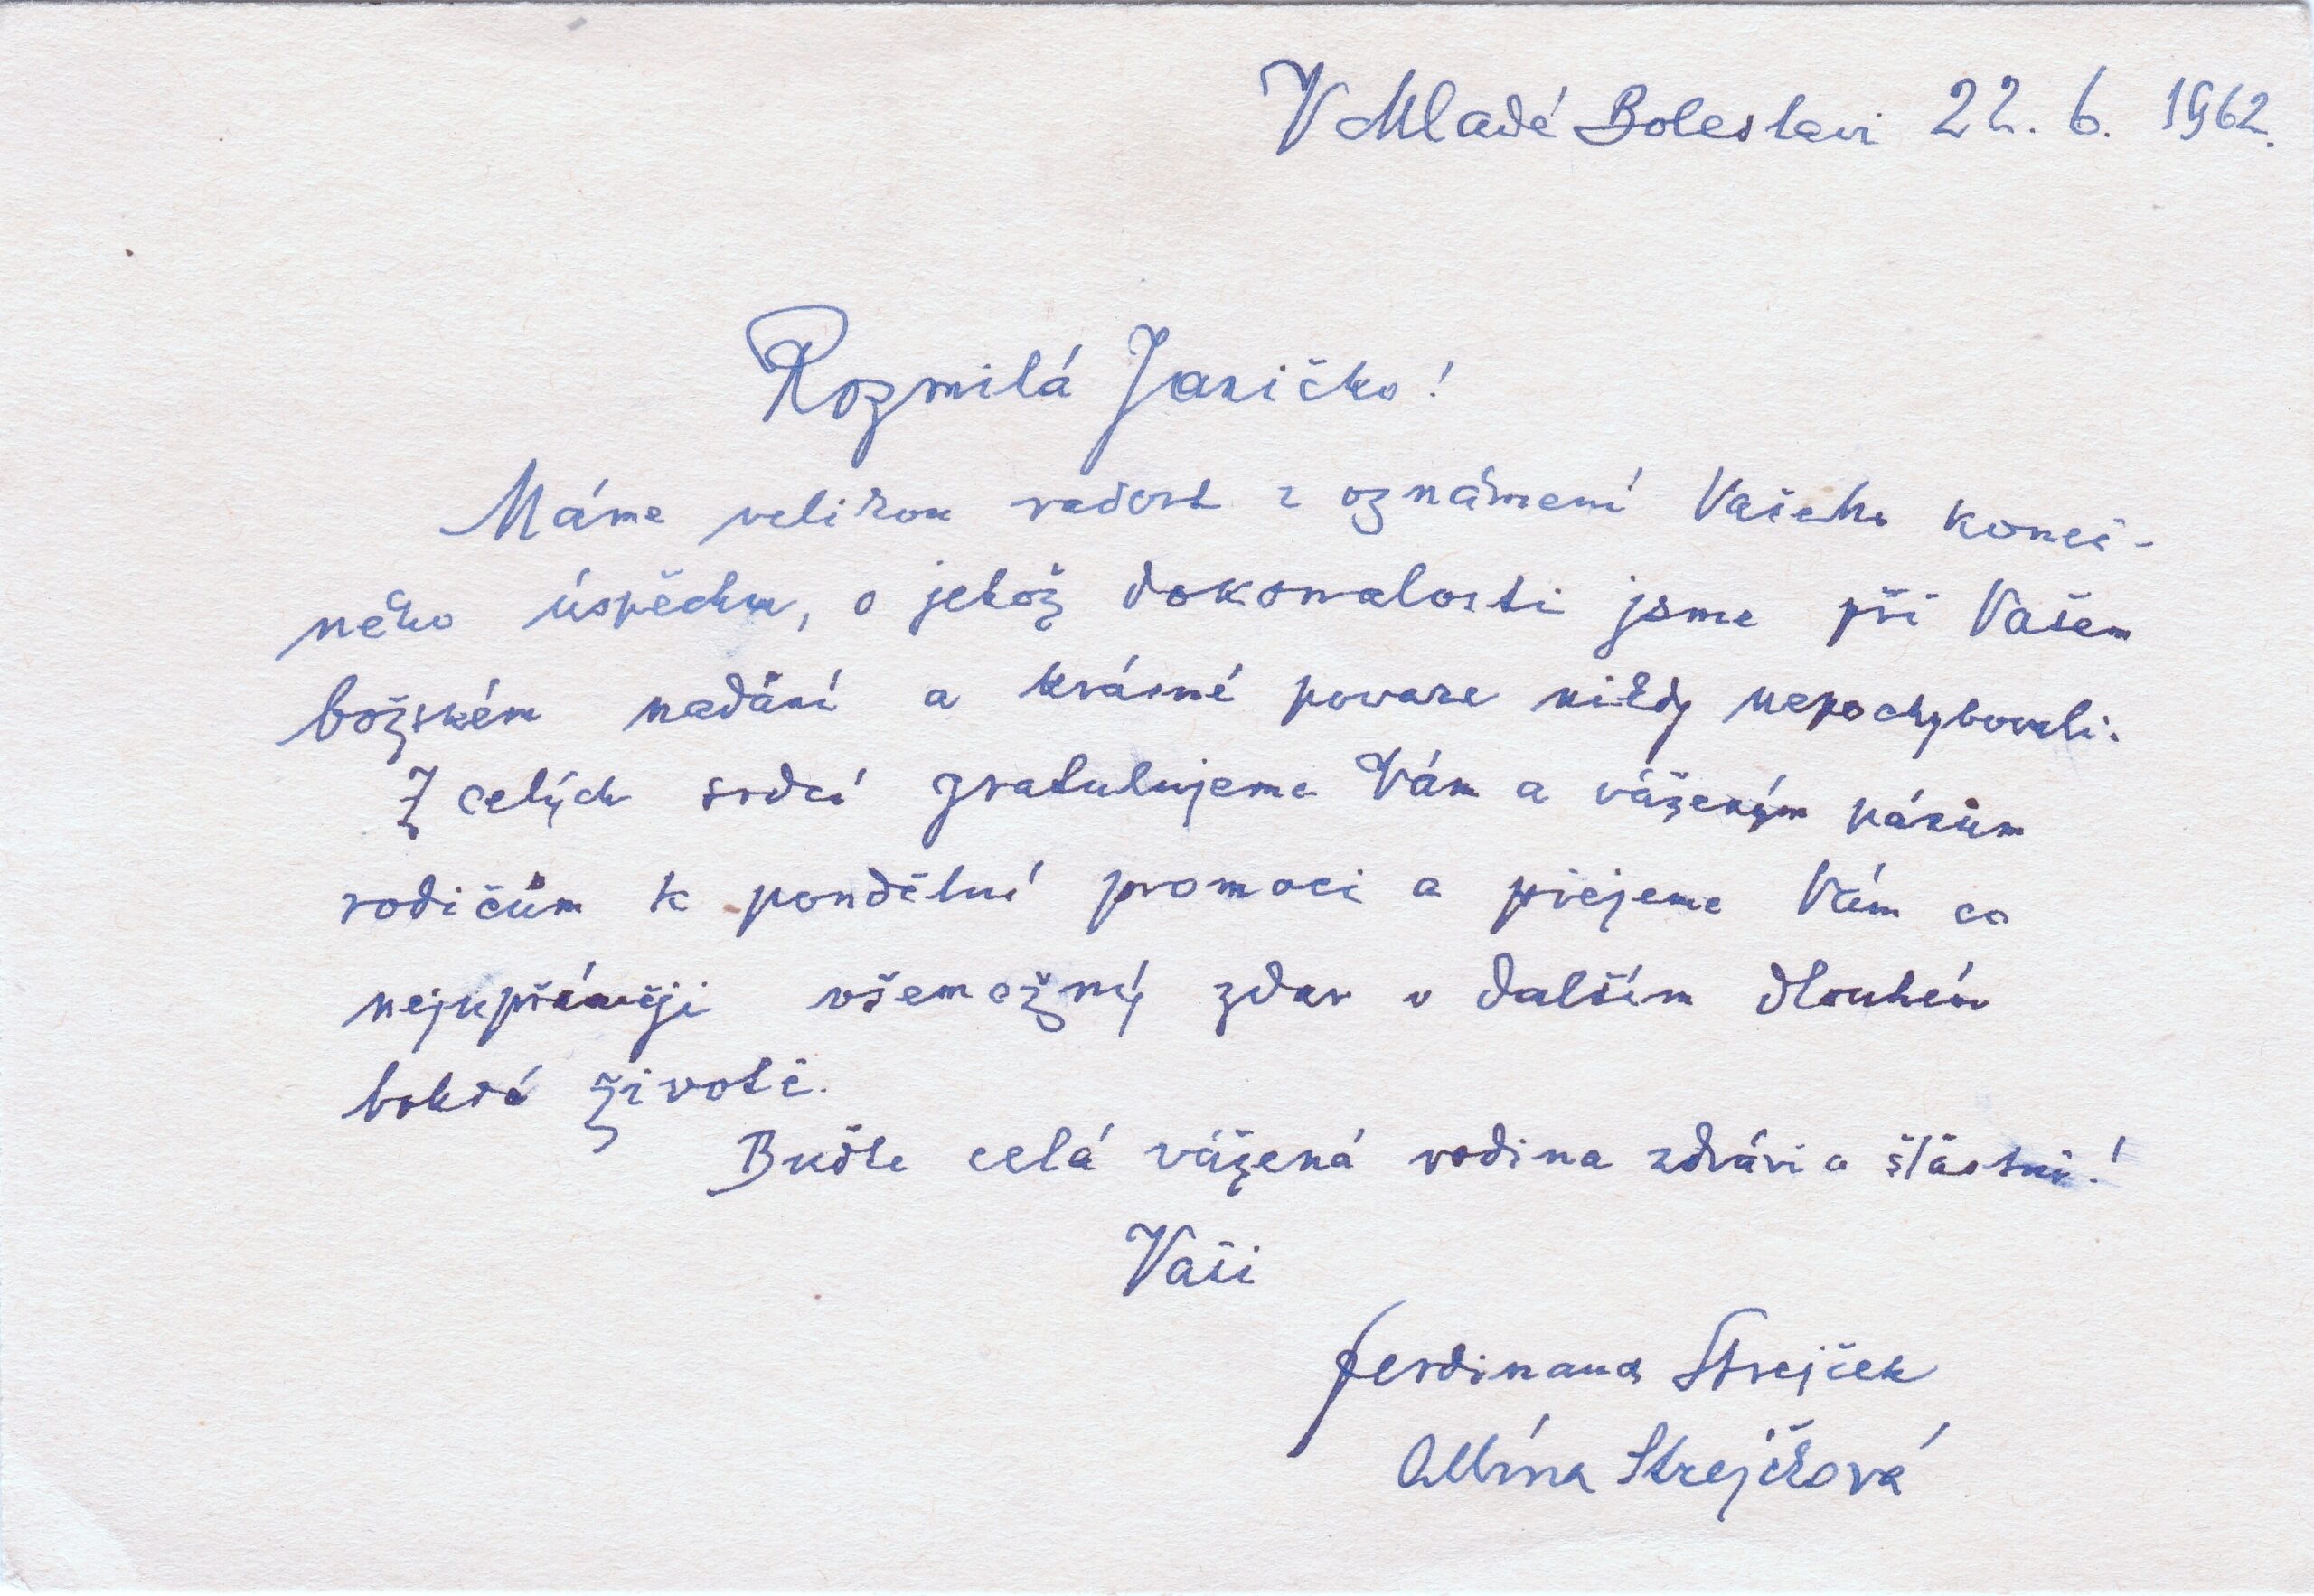 V Mladé Boleslavi 22. 6. 1962.
Rozmilá Janičko!
Máme velikou radost z oznámení Vašeho koneč-
ného úspěchu, o jehož dokonalosti jsme při Vašem
božském nadání a krásné povaze nikdy nepochybovali.
Z celých srdcí gratulujeme Vám a váženým pánům
rodičům k pondělní promoci a přejeme Vám co
nejupřímněji všemožný zdar v dalším dlouhém
životě.
Buďte celá vážená rodina zdrávi a šťastni!
Vaši
Ferdinand Strejček
Albína Strejčková